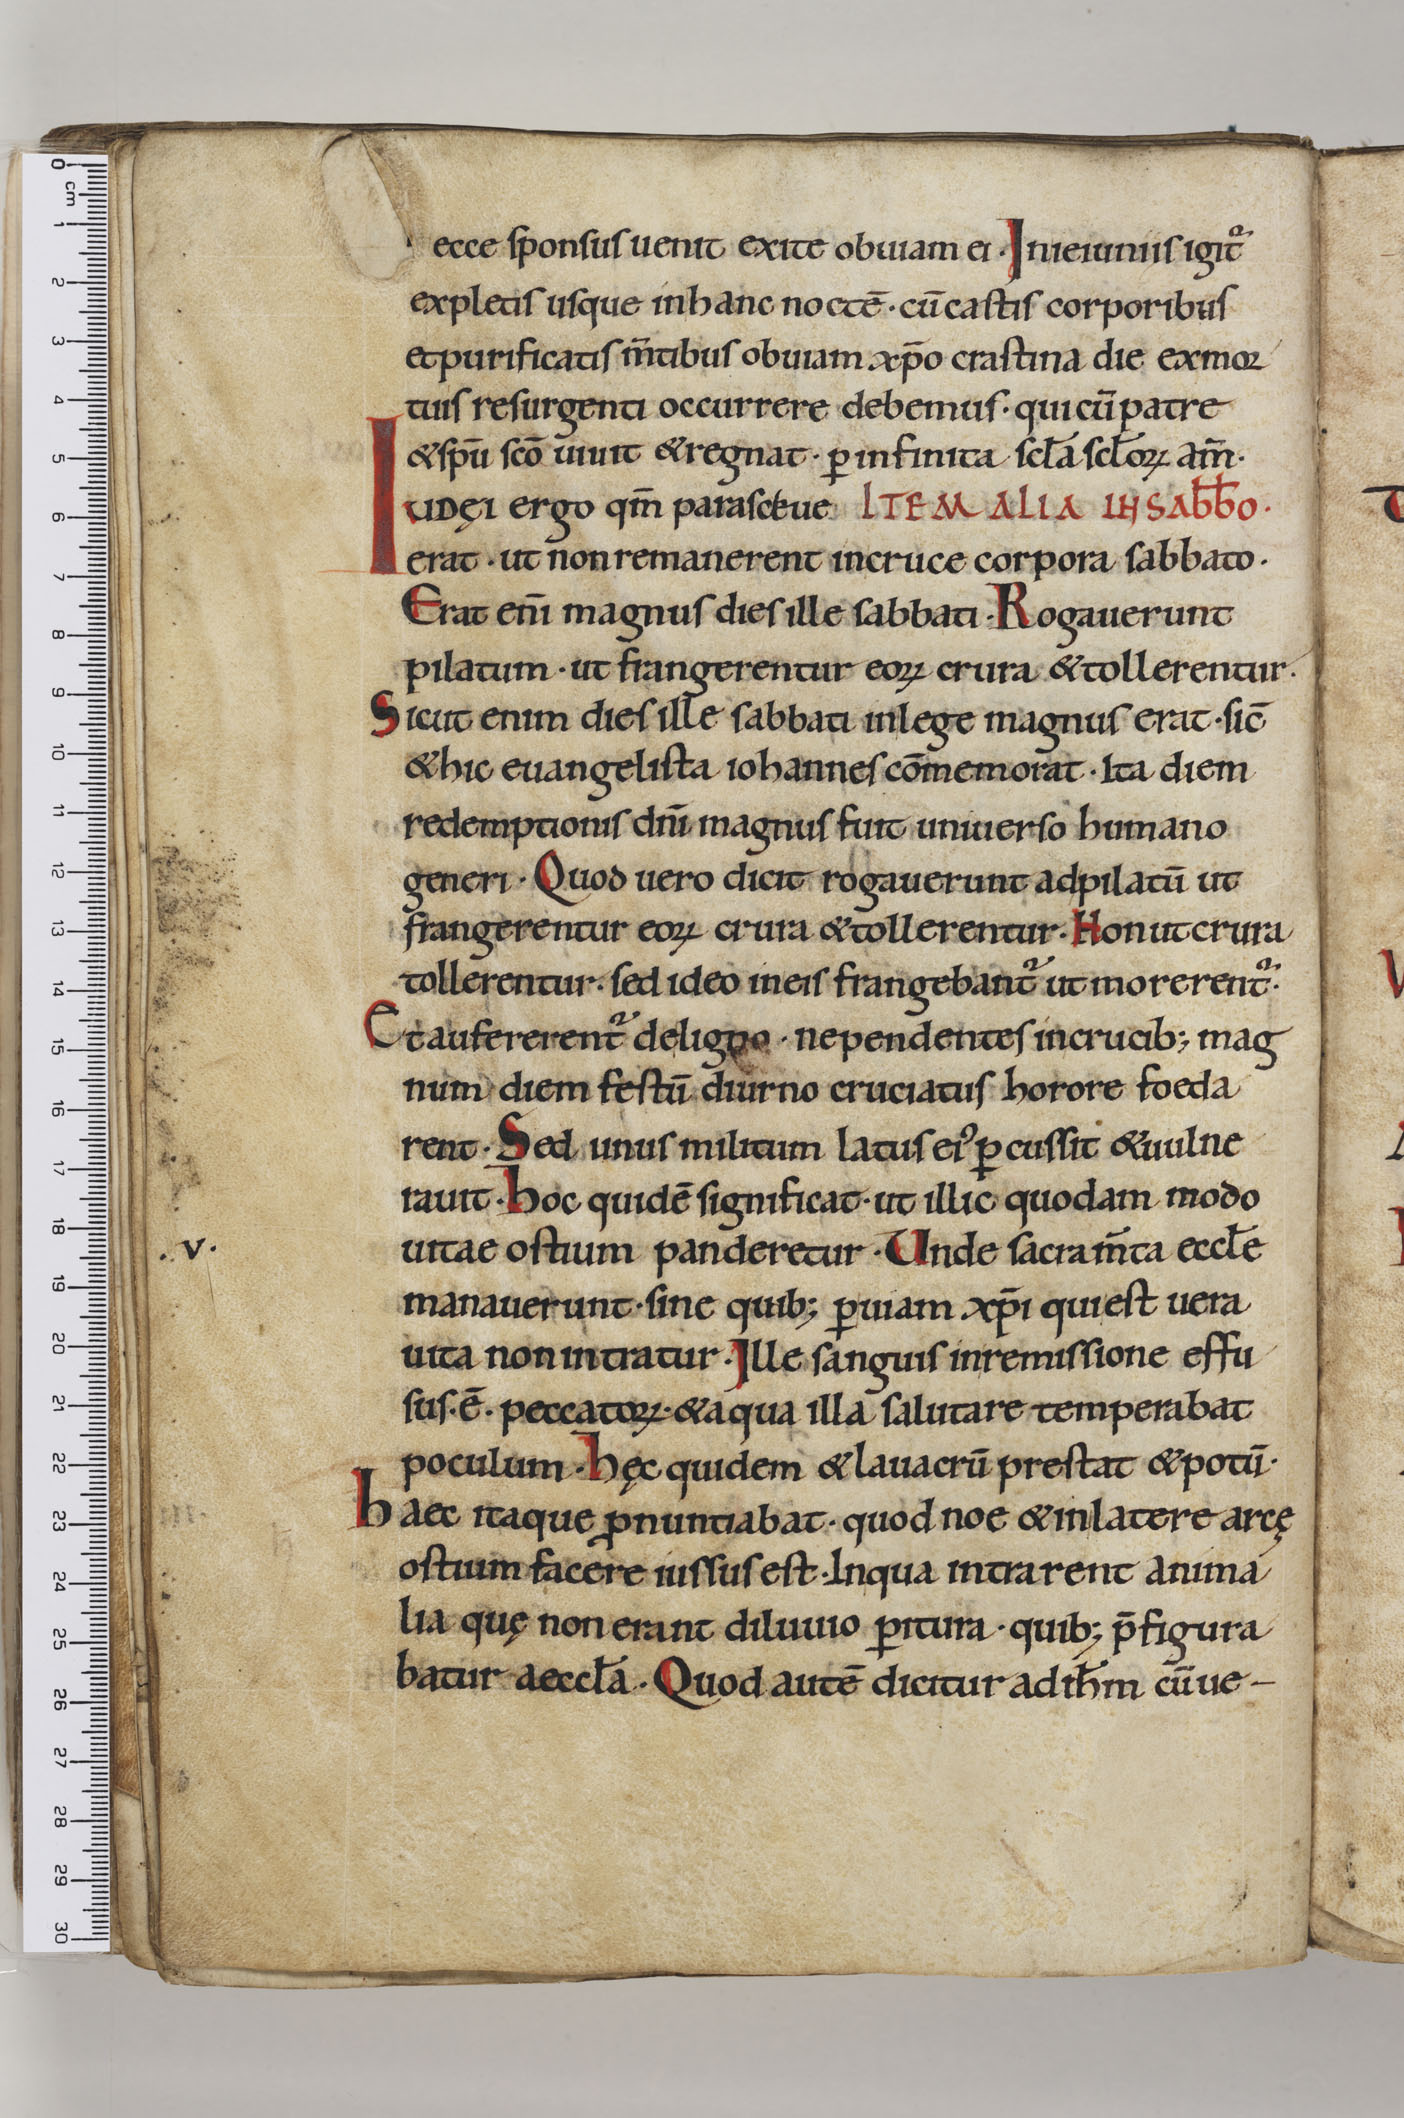 ecce sponsus uenit exite obuiam ei · In ieiuniis igit᷑
expletis usque inhanc noctē · cū castis corporibus
et purificatis m̄tibus obuiam xp̄o crastina die exmor
tuis resurgenti occurrere debemus · qui cū patre
& sp̄u sc̄o uiuit & regnat · ꝑ infinita sc̄la sc̄loꝝ am̄ ·
IUDĘI ergo qm̄ parasceue ITEM ALIA IN SABB̄O ·
erat · ut non remanerent in cruce corpora sabbato ·
Erat eni̅ magnus dies ille sabbati · Rogauerunt
pilatum · ut frangerentur eoꝝ crura & tollerentur ·
Sicut enim dies ille sabbati in lege magnus erat · sic̄
& hic euangelista iohannes cōmemorat · Ita diem
redemptionis dn̄i magnus fuit uniuerso humano
generi · Quod uero dicit rogauerunt ad pilatū ut
frangerentur eoꝝ crura & tollerentur · Non ut crura
tollerentur · sed ideo in eis frangebant᷑ ut morerent᷑ ·
Et aufererent᷑ de ligno · ne pendentes in crucib; mag
num diem festū diurno cruciatus horore foeda
rent · Sed unus militum latus ei᾽ ꝑcussit & uulne
rauit · hoc quidē significat · ut illic quodam modo
uitae ostium panderetur · Unde sacram̄ta eccl̄e
manauerunt · sine quib; ꝑ uiam xp̄i qui est uera
uita non intratur · Ille sanguis in remissione effu
sus · ē · peccatoꝝ · & aqua illa salutare temperabat
poculum · hęc quidem & lauacrū prestat & potū ·
haec itaque ꝓnuntiabat · quod noe & in latere arcę
ostium facere iussus est · In qua intrarent anima
lia quę non erant diluuio ꝑitura · quib; p̄figura
batur aeccl̄a · Quod autē dicitur ad ih̄m cū ue –
· v ·